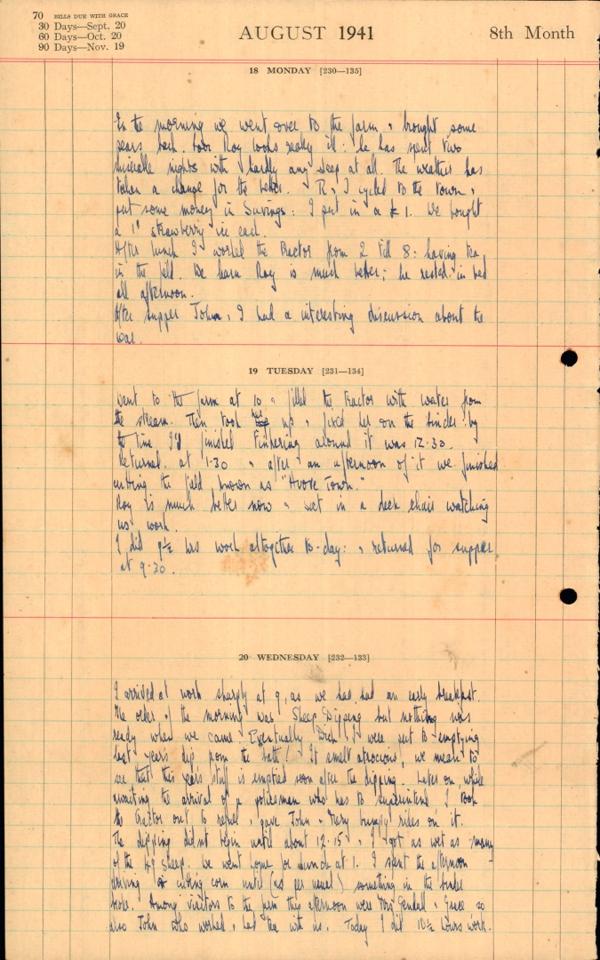 70 BILLS DUE WITH GRACE
30 Days—Sept. 20
60 Days—Oct. 20
90 Days—Nov. 19
AUGUST 1941
8th Month
18 MONDAY [230—135]
In the morning we went over to the farm & brought some
pears back. Poor Roy looks really ill: he has spent two
miserable nights with hardly any sleep at all. The weather has
taken a change for the better. R & I cycled to the town &
put some money in Savings: I put in a £1. We bought
a 1ᵈ strawberry ice each.
After lunch I worked the tractor from 2 till 8: having tea
in the field. We hear Roy is much better; he rested in bed
all afternoon.
After supper John & I had a interesting discussion about the
war.
19 TUESDAY [231—134]
Went to the farm at 10 & filled the tractor with water from
the stream. Then took her up & fixed her on the binder: by
the time I'd finished tinkering around it was 12.30.
Returned at 1.30 & after an afternoon of it we finished
cutting the field known as "Town."
Roy is much better now & sat in a deck chair watching
us work.
I did 9½ hrs work altogether to-day: & returned for supper
at 9.30.
20 WEDNESDAY [232—133]
I arrived at work sharply at 9, as we had had an early breakfast.
The order of the morning was Sheep Dipping but nothing was
ready when we came. Eventually Dick & I were put to emptying
last years dip from the bath! It smelt atrocious, we mean to
see that this years stuff is emptied soon after the dipping. Later on, while
awaiting the arrival of a policeman who has to superintend I took
the tractor out to refuel & gave John & Terry bumpy rides on it.
The dipping did not begin until about 12.15 & I got as wet as many
of the sheep. We went home for lunch at 1. I spent the afternoon
driving & cutting corn until (as per usual) something in the binder
broke. Among visitors to the farm this afternoon were & Grace so
also John who worked & had tea with us. Today I did 10½ hours work.